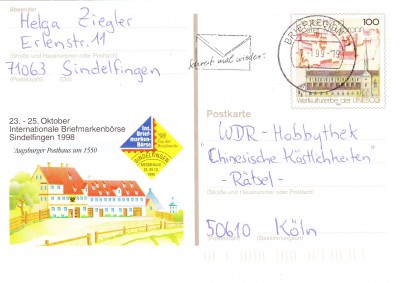 Absender
Helga Ziegler
Erlenstr. 11
(Straße und Hausnummer oder Postfach)
71063 Sindelfingen
(Postleitzahl) (Ort)
Schreib mal wieder
BRIEFZENTRUM
100
Weltkulturerbe der UNESCO
23. - 25. Oktober
Internationale Briefmarkenbörse
Sindelfingen 1998
"Augsburger Posthaus um 1550
Int.
Brief-
marken-
Börse
SINDELFINGEN
Postkarte
WDR - Hobbythek
"Chinesische Köstlichkeiten"
- Rätsel -
(Straße und Hausnummer oder Postfach)
50610 Köln
(Postleitzahl) (Bestimmungsort)